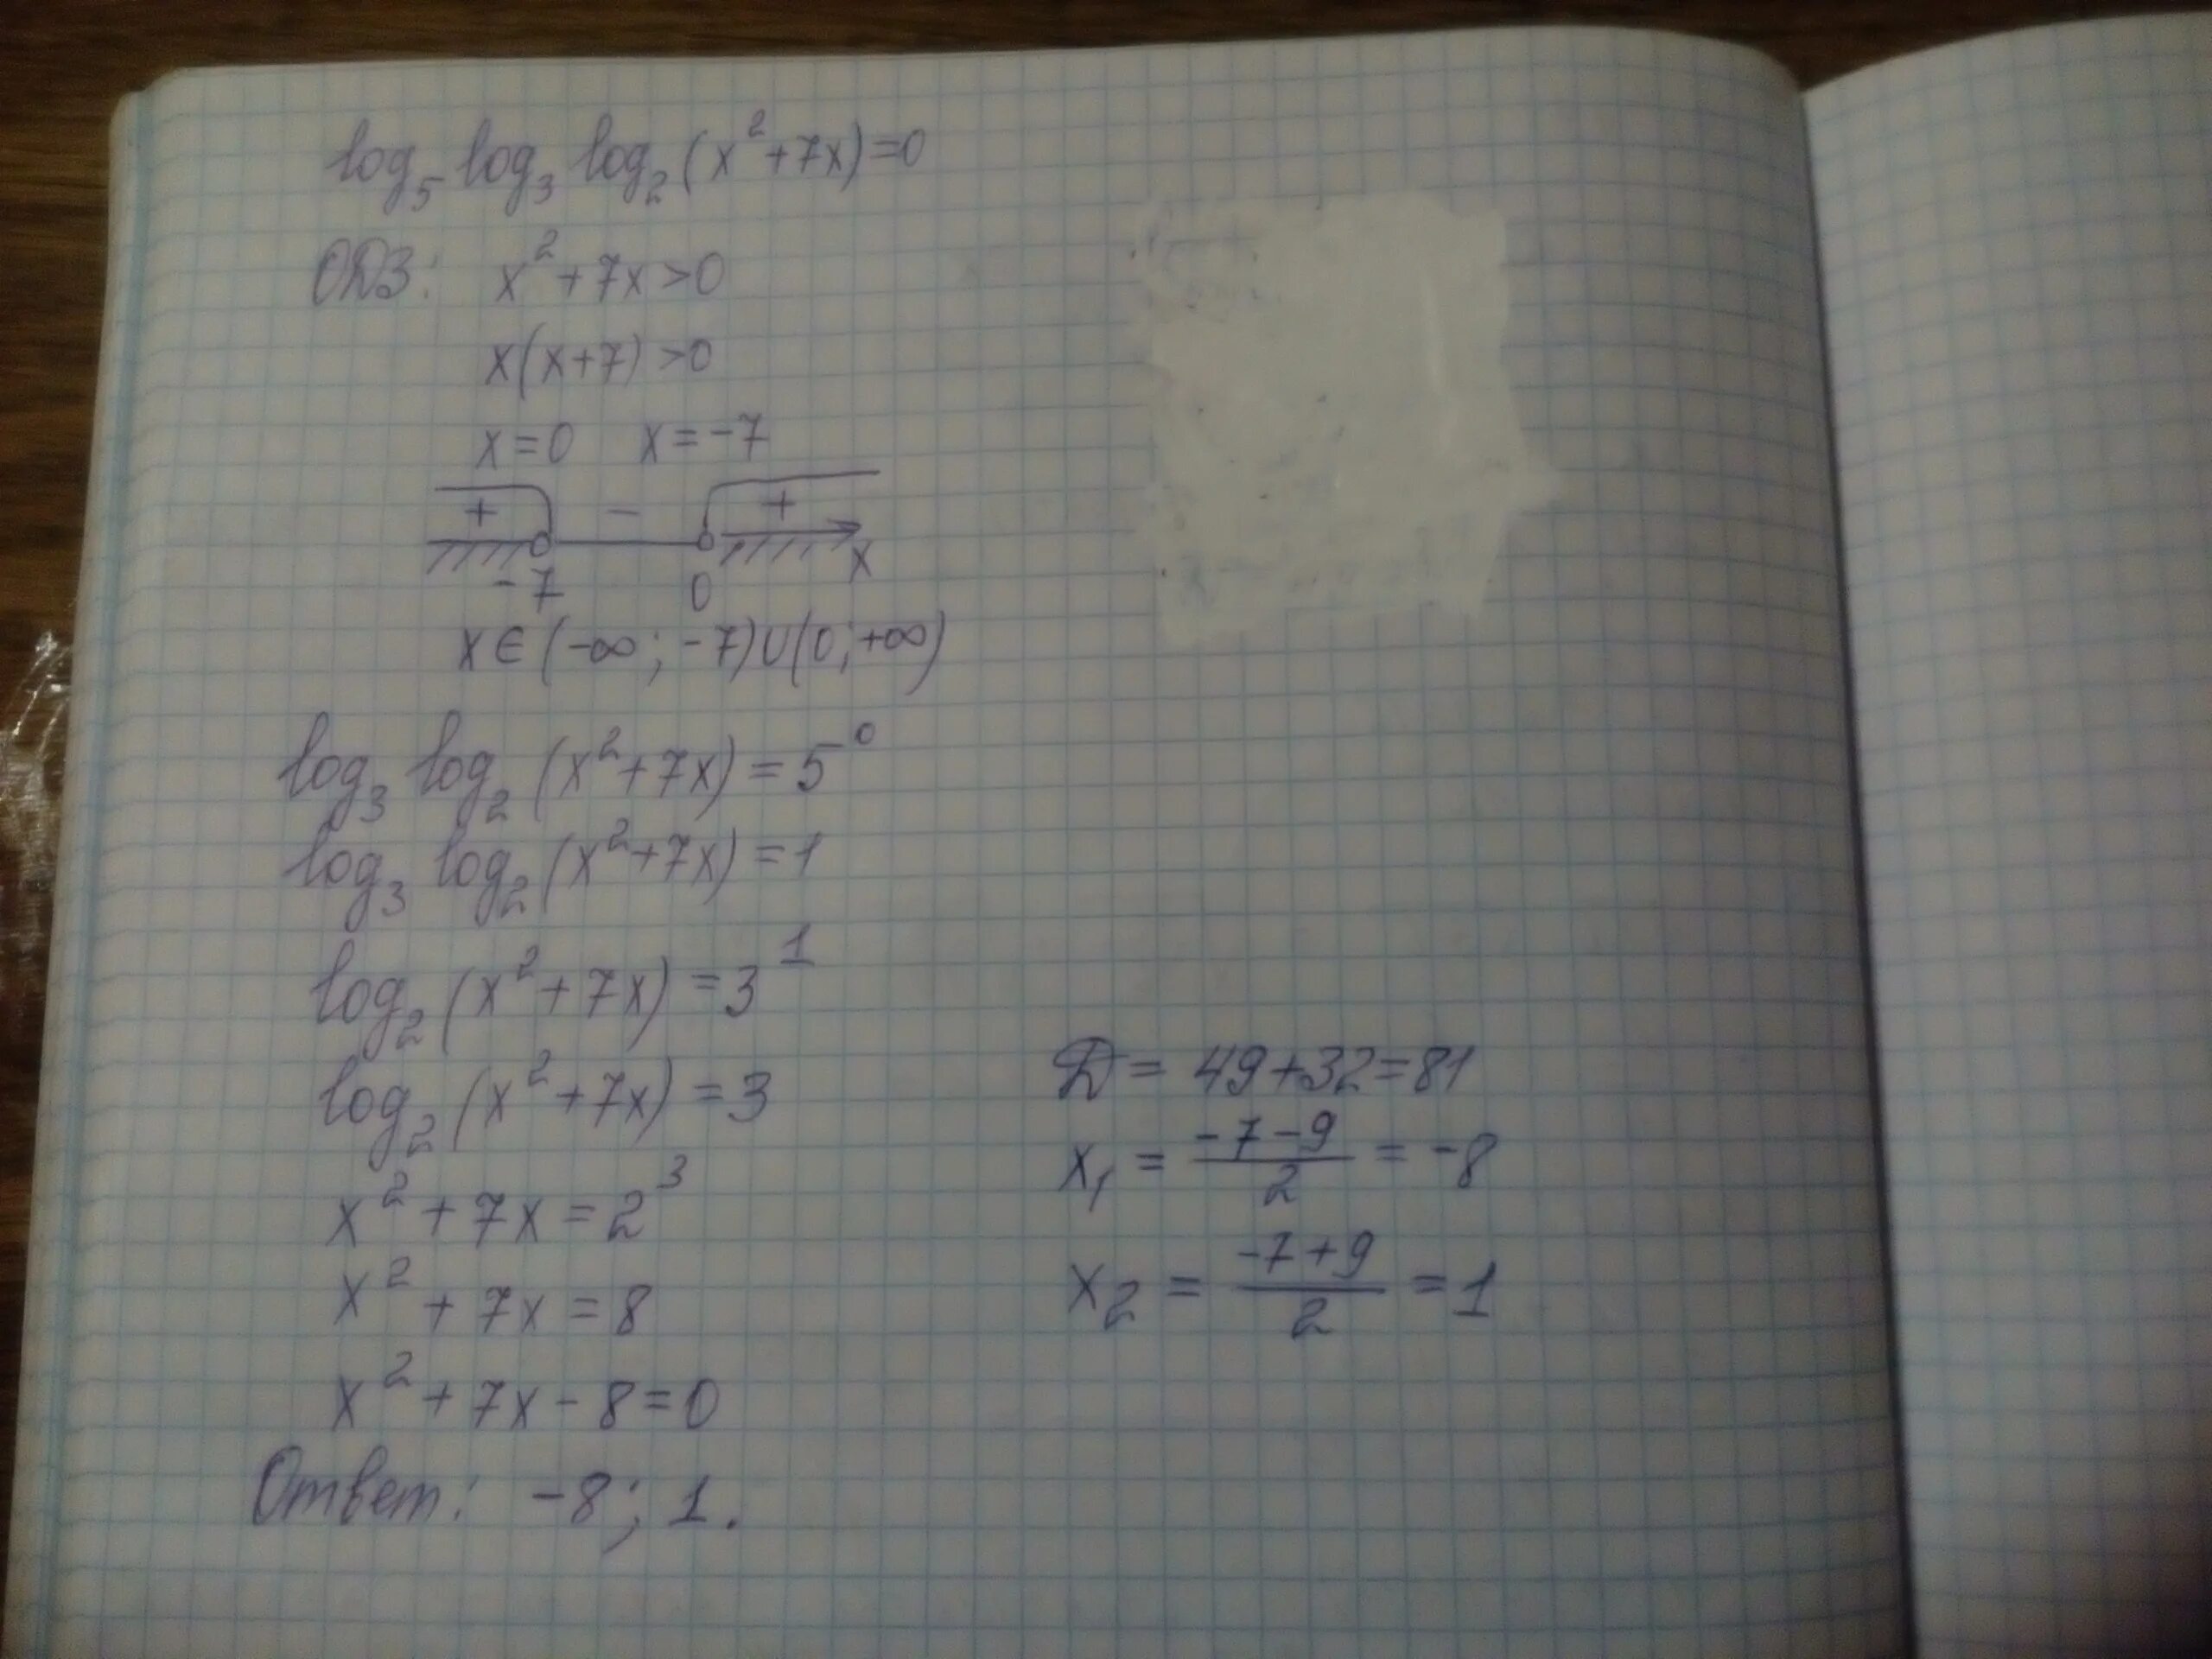 log₅ log₃ log₂ (x²+7x)=0
ОДЗ: x²+7x>0
x(x+7)>0
x=0 x=-7
+ - +
-7 0 x
x∈(-∞; -7)∪(0; +∞)
log₃ log₂ (x²+7x)=5⁰
log₃ log₂ (x²+7x)=1
log₂ (x²+7x)=3¹
log₂ (x²+7x)=3
x²+7x=2³
x²+7x=8
x²+7x-8=0
D= 49+32=81
x₁ = (-7-9)/2 = -8
x₂ = (-7+9)/2 =1
Ответ: -8; 1.